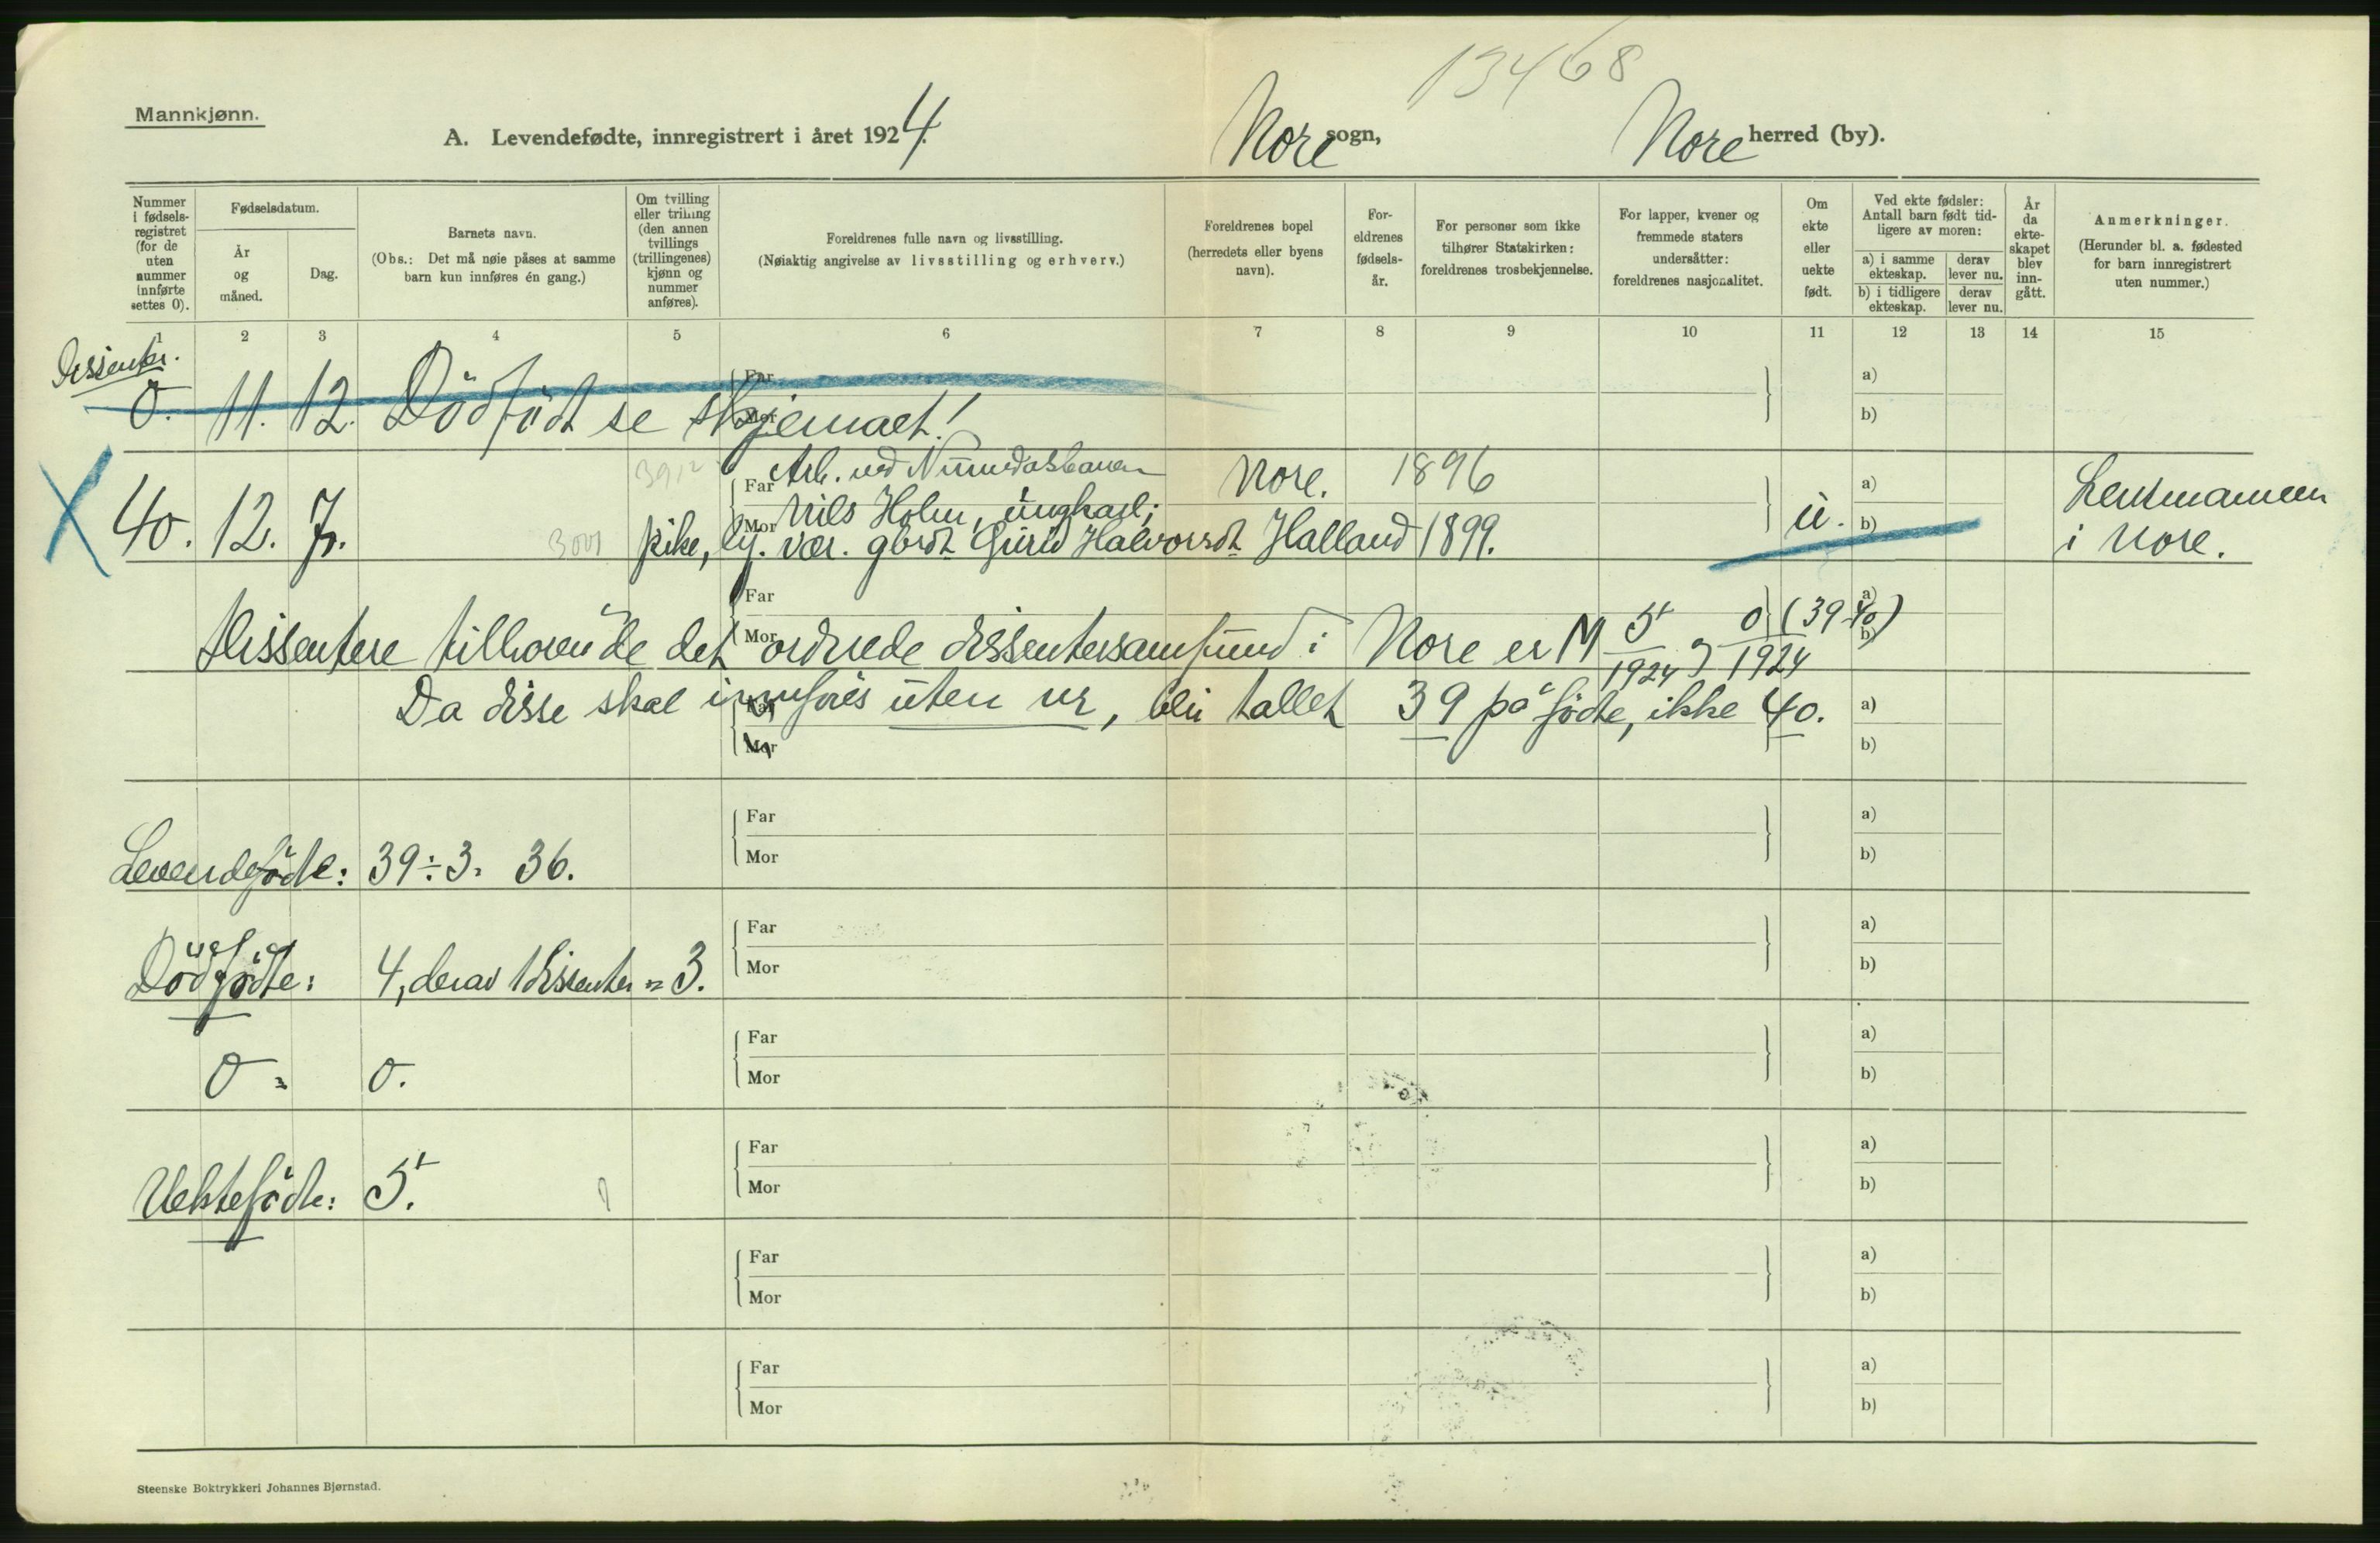 13468
Mannkjønn.
A. Levendefødte, innregistrert i året 1924.
Nore sogn,
Nore herred (by).
Nummer i fødselsregistret (for de uten nummer innførte settes 0).
Fødselsdatum.
År og måned.
Dag.
Barnets navn.
(Obs.: Det må nøie påses at samme barn kun innføres én gang.)
Om tvilling eller trilling (den annen tvillings (trillingenes) kjønn og nummer anføres).
Foreldrenes fulle navn og livsstilling.
(Nøiaktig angivelse av livsstilling og erhverv.)
Foreldrenes bopel
(herredets eller byens navn).
Foreldrenes fødselsår.
For personer som ikke tilhører Statskirken: foreldrenes trosbekjennelse.
For lapper, kvener og fremmede staters undersåtter: foreldrenes nasjonalitet.
Om ekte eller uekte født.
Ved ekte fødsler: Antall barn født tidligere av moren:
a) i samme ekteskap.
derav lever nu.
b) i tidligere ekteskap.
derav lever nu.
År da ekteskapet blev inngått.
Anmerkninger.
(Herunder bl. a. fødested for barn innregistrert uten nummer.)
1 2 3 4 5 6 7 8 9 10 11 12 13 14 15
Dissenter.
0. 11. 12. Dödfödt se skjemaet!
Far a)
Mor b)
3912 Far Arb. ved Numedalsbanen Nore. 1896 a) Lensmannen
40. 12. 7. Nils Holm, ungkarl; u. i Nore.
3001 Mor pike, ly. vær. gbrdt Gurid Halvorsdt Halland 1899. b)
Far a)
Mor b)
Dissentere tilhørende det ordnede dissentersamfund i Nore er M 5/1924 og 0/1924 (39-40)
Da disse skal innføres uten nr, bli tallet 39 på födte, ikke 40.
Far a)
Mor b)
Far a)
Levendefödte: 39÷3= 36. Mor b)
Far a)
Dödfödte: 4, derav 1 dissenter = 3. Mor b)
Far a)
0 = 0. Mor b)
Far a)
Uektefödte: 5. Mor b)
Far a)
Mor b)
Far a)
Mor b)
Steenske Boktrykkeri Johannes Bjørnstad.